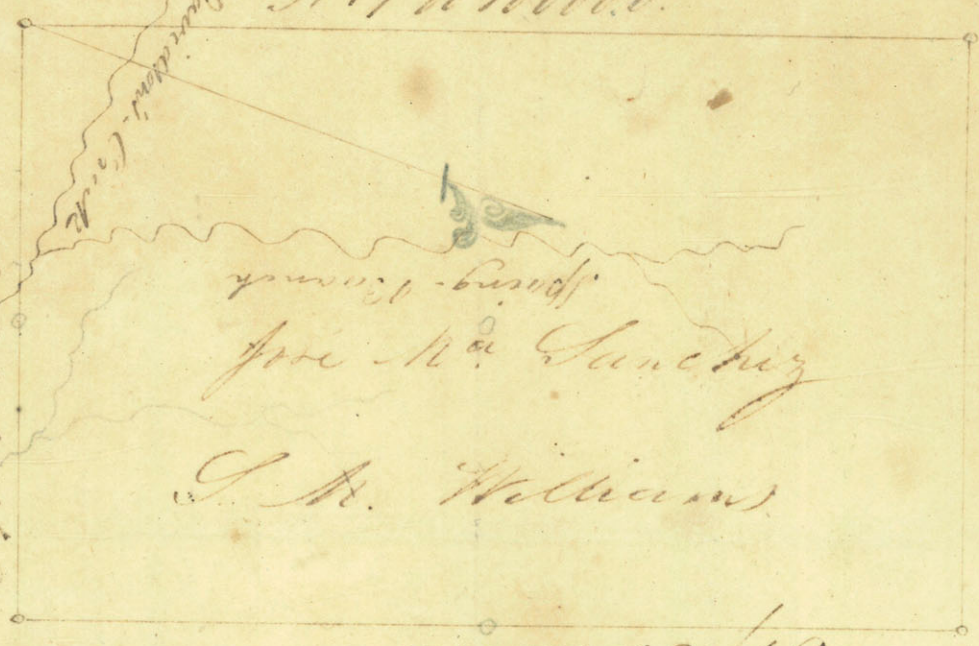 Davidson's Creek
Spring Branch
Jose Ma. Sanchez
S. M. Williams